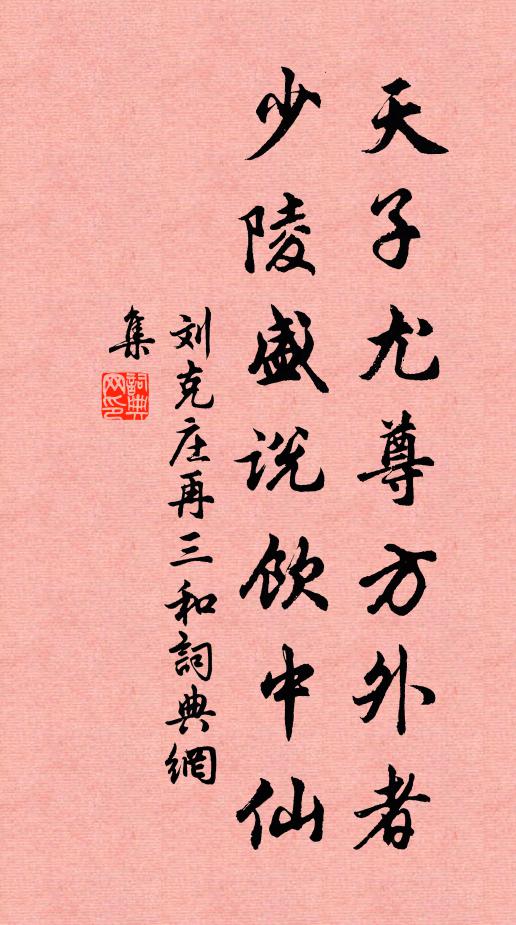 天子尤尊方外者
少陵盛说饮中仙
刘克庄再三和詞典網
集
詞典
网印